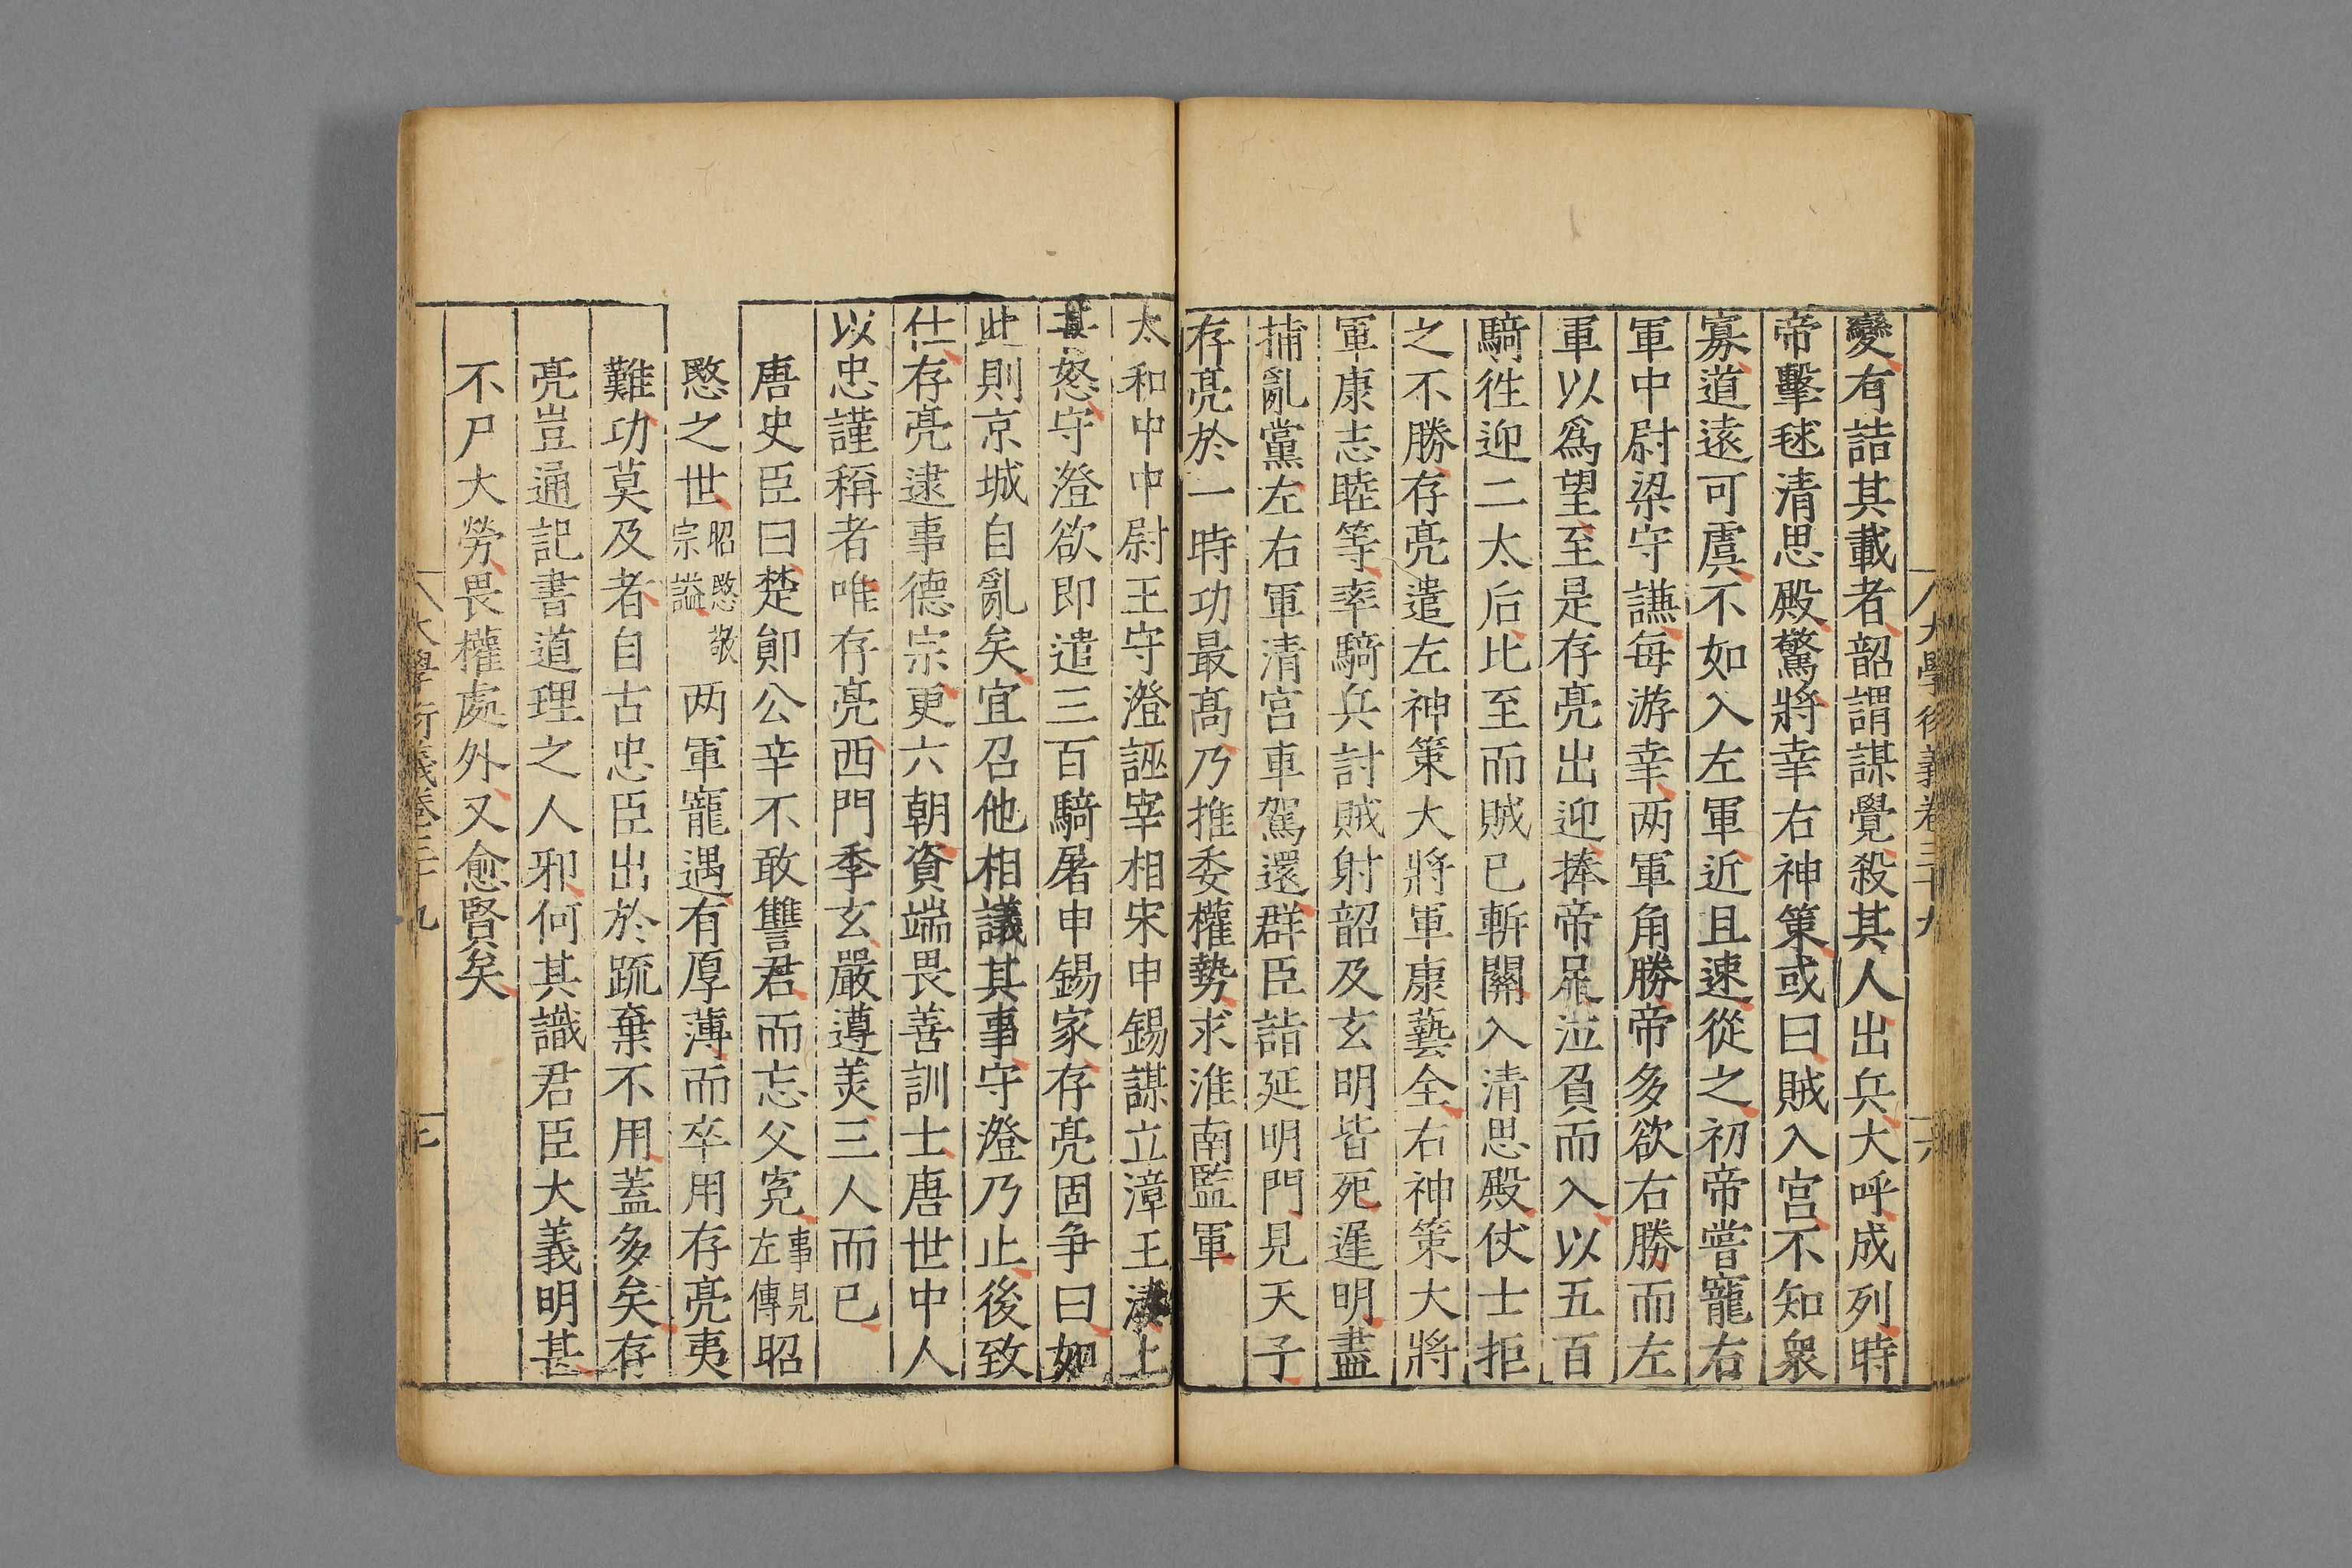 變有詰其載者韶謂謀覺殺其人出兵大呼成列時
帝擊毬清思殿驚將幸右神策或曰賊入宮不知衆
寡道遠可虞不如入左軍近且速從之初帝嘗寵右
軍中尉梁守謙每游幸两軍角勝帝多欲右勝而左
軍以爲望至是存亮出迎捧帝𠯁泣負而入以五百
騎徃迎二太后比至而賊已斬關入清思殿仗士拒
之不勝存亮遣左神策大將軍康藝全右神策大將
軍康志睦等率騎兵討賊射韶及玄明皆死遲明盡
捕亂黨左右軍清宮車駕還群臣詣延明門見天子
存亮於一時功最髙乃推委權勢求淮南監軍
太和中中尉王守澄誣宰相宋申錫謀立漳王湊上
甚怒守澄欲即遣三百騎屠申錫家存亮固争曰如
此則京城自亂矣宜召他相議其事守澄乃止後致
仕存亮逮事德宗更六朝資端畏善訓士唐世中人
以忠謹稱者唯存亮西門季玄嚴遵羙三人而已
唐史臣曰楚鄖公辛不敢讐君而忘父寃事見左傳昭
愍之世昭愍敬宗謚两軍寵遇有厚薄而卒用存亮夷
難功莫及者自古忠臣出於疏棄不用蓋多矣存
亮豈通記書道理之人邪何其識君臣大義明甚
不尸大勞畏權處外又愈賢矣